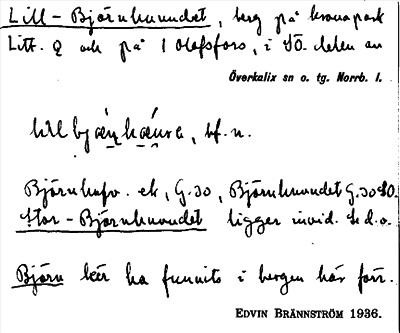 Lill-Björnhuvudet, berg på kronopark
Litt. Q och på 1 Olofsfors, i SÖ. delen av
Överkalix sn o. tg. Norrb. l.
bf. n.
Björnhuv. ek, G.30, Björnhuvudet G.30 SO.
Stor-Björnhuvudet ligger invid. S.d.o.
Björn lär ha funnits i bergen här förr.
EDVIN BRÄNNSTRÖM 1936.